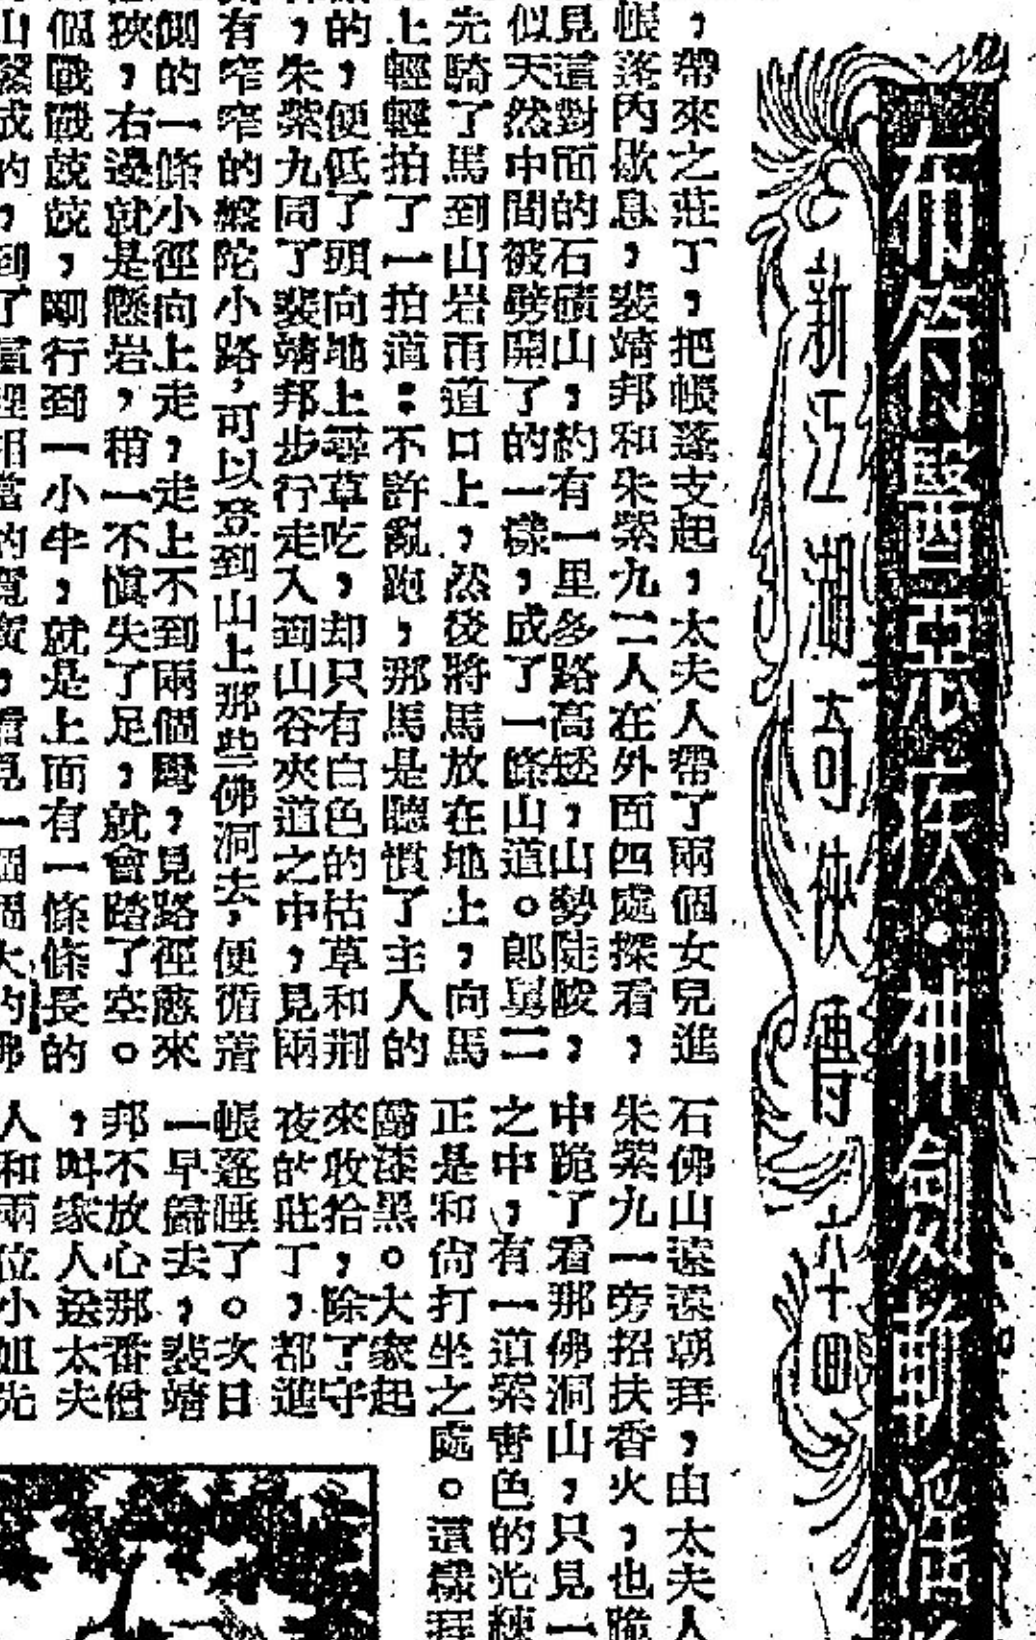 有符醫酉惡疾・神劍斬活
新江湖奇俠傳
六十四
，帶來之莊丁，把帳蓬支起，太夫人帶了兩個女兒進
帳蓬內歇息，裴靖邦和朱紫九二人在外面四處探看，
見這對面的石磺山，約有一里多路高拯，山勢陡峻，
似天然中間被劈開了的一樣，成了一條山道。郎舅二
先騎了馬到山岩甬道口上，然後將馬放在地上，向馬
上輕輕拍了一拍道：不許亂跑，那馬是聽慣了主人的
的，便低了頭向地上尋草吃，却只有白色的枯草和荆
，朱紫九同了裴靖邦步行走入到山谷夾道之中，見兩
有窄窄的盤陀小路，可以登到山上那些佛洞去，便循着
側的一條小徑向上走，走上不到兩個彎，見路徑愈來
狹，右邊就是懸岩，稍一不愼失了足，就會踏了空。
個戰戰兢兢，剛行到一小半，就是上面有一條條長的
石佛山遠遠朝拜，由太夫人
朱紫九一旁招扶香火，也跪
中跪了看那佛洞山，只見一
之中，有一道紫靑色的光練
正是和尙打坐之處。這樣拜
漆黑。大家起
來收拾，除了守
夜的莊丁，都進
帳蓬睡了。次日
一早歸去，裴靖
邦不放心那番僧
，叫家人送太夫
人和兩位小姐先